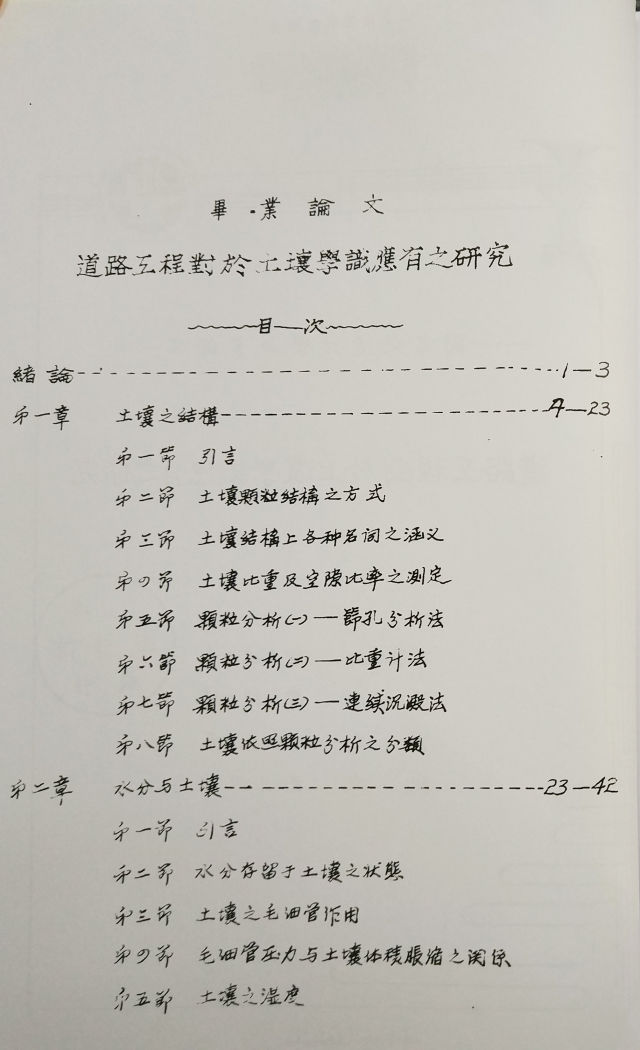 畢業論文
道路工程對於土壤學識應有之研究
目次
緒論 1—3
第一章 土壤之結構 4—23
第一節 引言
第二節 土壤顆粒結構之方式
第三節 土壤結構上各种名词之涵义
第四節 土壤比重及空隙比率之測定
第五節 顆粒分析(一)—篩孔分析法
第六節 顆粒分析(二)—比重计法
第七節 顆粒分析(三)—連续沉澱法
第八節 土壤依照顆粒分析之分類
第二章 水分与土壤 23—42
第一節 引言
第二節 水分存留于土壤之狀態
第三節 土壤之毛細管作用
第四節 毛細管压力与土壤体積脹縮之関係
第五節 土壤之湿度